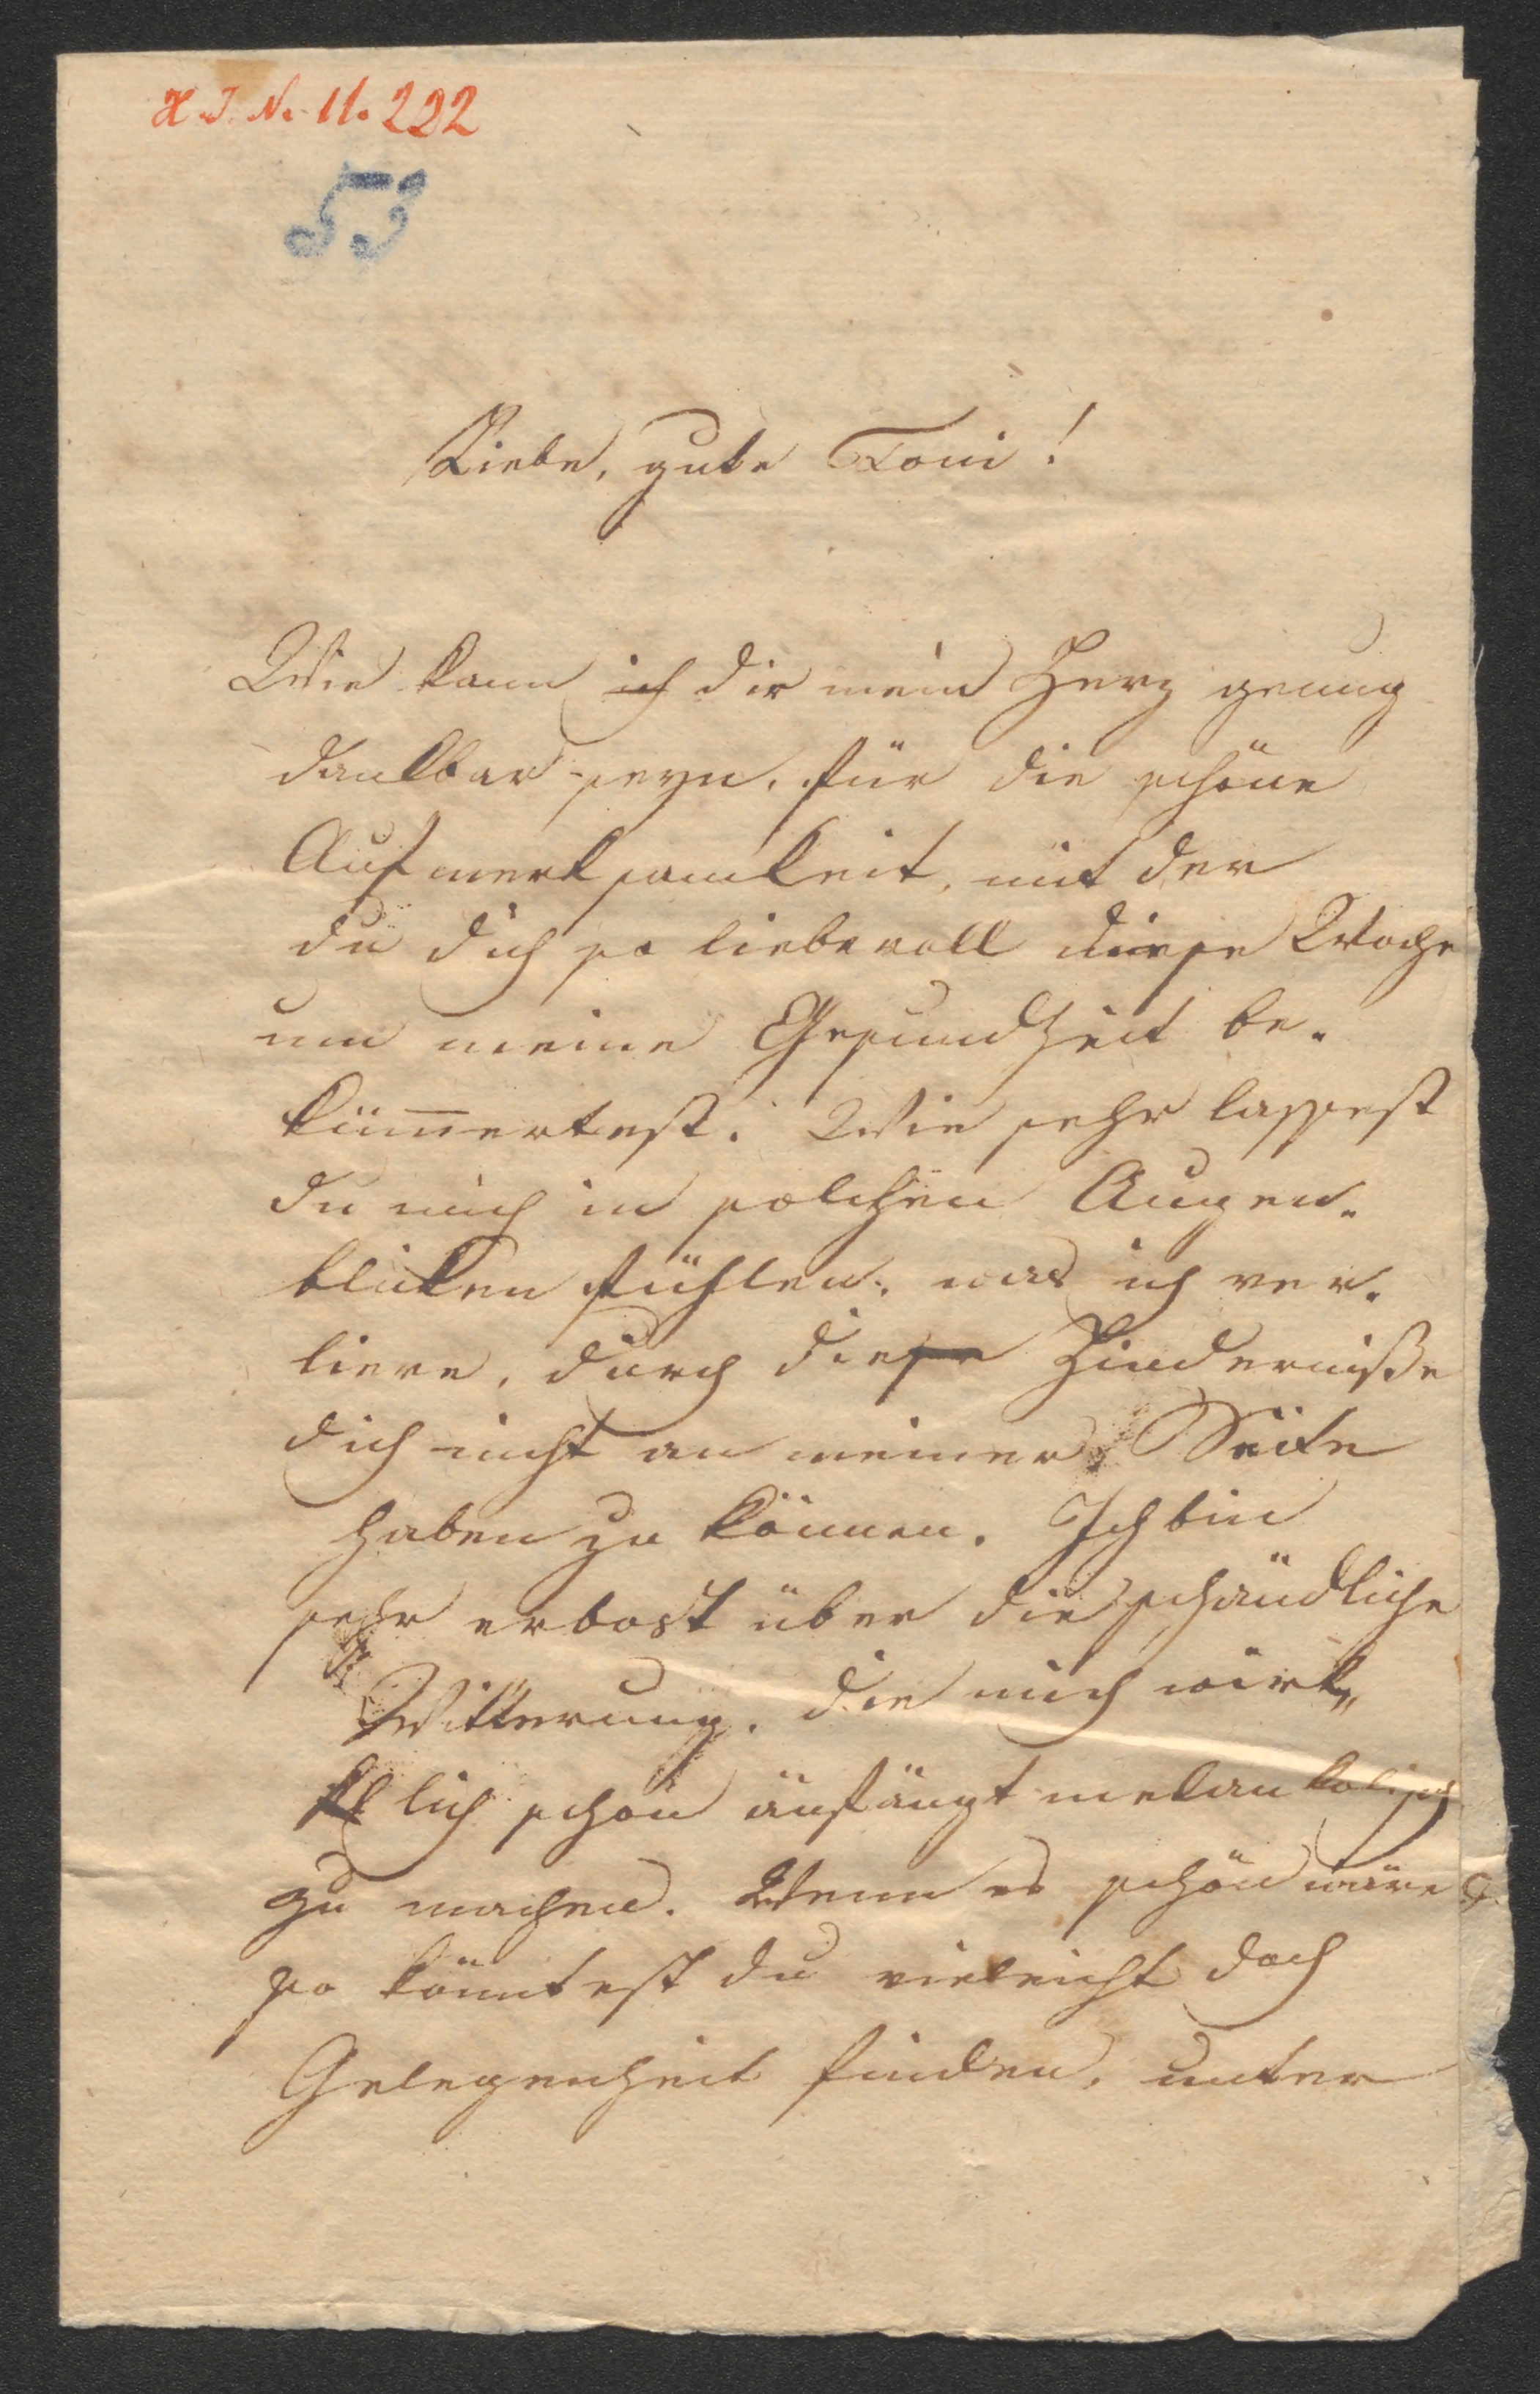 H.I.N. 11.222
53
Liebe, gute Toni!
Wie kann ich dir mein Herz genug
dankbar seyn, für die schöne
Aufmerksamkeit, mit der
du dich so liebevoll diese Woche
um meine Gesundheit be-
kümertest. Wie sehr lassest
du mich in solchen Augen-
blicken fühlen, was ich ver-
liere, durch diese Hinderniße
dich nicht an meiner Seite
haben zu können. Ich bin
sehr erbost über die schändliche
Witterung, die mich wirk„
lich schon anfängt melankolisch
zu machen. Wenn es schön wäre
so könntest du vieleicht doch
Gelegenheit finden, unter